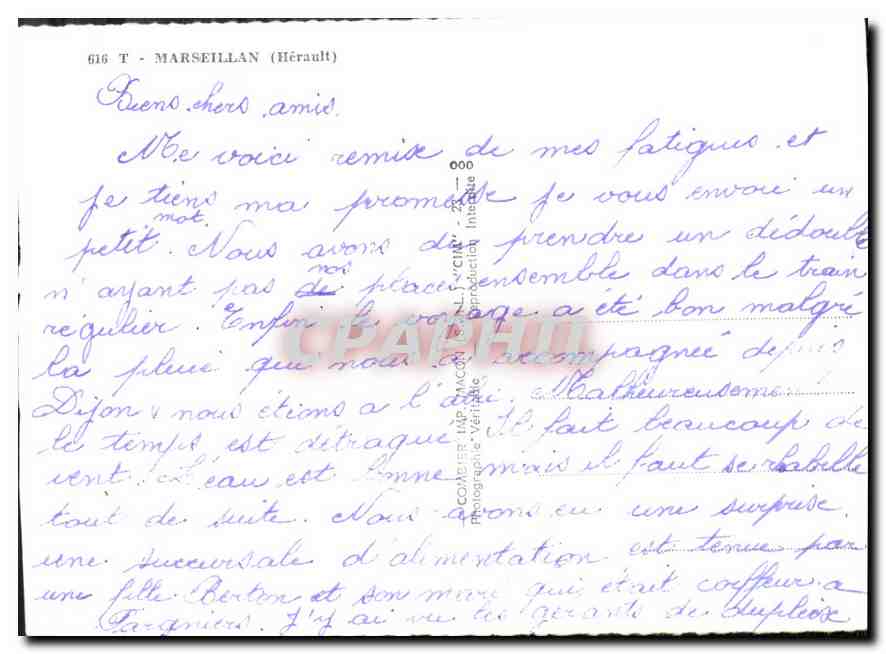 616 T - MARSEILLAN (Hérault)
Biens chers amis.
Me voici remise de mes fatigues et
je tiens ma promesse je vous envoi un
petit mot. Nous avons du prendre un dédouble
n'ayant pas de nos places ensemble dans le train
régulier. Enfin le voyage a été bon malgré
la pluie qui nous a accompagnée depuis
Dijon, nous étions a l'abri. Malheureusement
le temps est détraqué. Il fait beaucoup de
vent. L'eau est bonne mais il faut se rabille
tout de suite. Nous avons eu une surprise.
une succursale d'alimentation est tenue par
une fille Berton et son mari qui était coiffeur a
Fargniers. J'y ai vu les gérants de Dupleix
COMBIER IMP. MACON "CIM"
Photographie Véritable - Reproduction Interdite
CPAPHIL